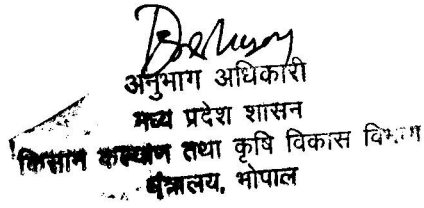 अनुभाग अधिकारी
मध्य प्रदेश शासन
किसान कल्याण तथा कृषि विकास विभाग
मंत्रालय, भोपाल